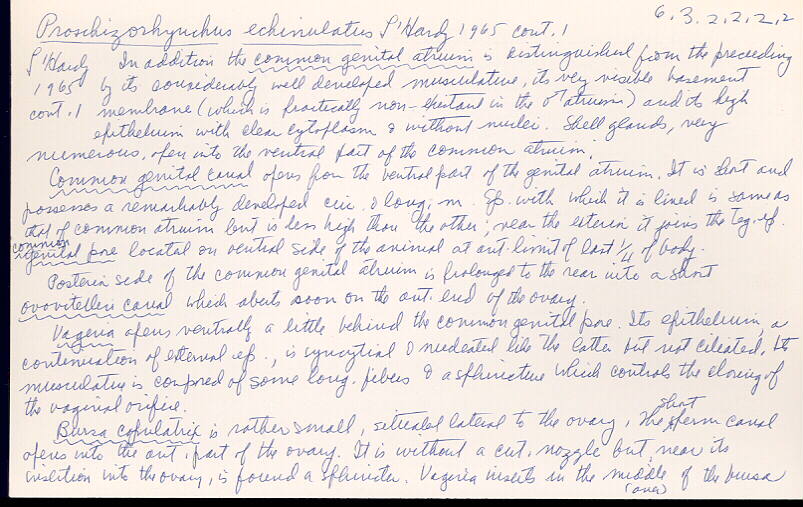 6.3.2.2.2.2
Proschizorhynchus echinulatus L'Hardy 1965 cont. 1
L'Hardy In addition the common genital atrium is distinguished from the preceeding
1965 by its considerably well developed musculature, its very visible basement
cont. 1 membrane (which is practically non-existant in the ♂ atrium) and its high
epithelium with clear cytoplasm & without nuclei. Shell glands, very
numerous, open into the ventral part of the common atrium.
Common genital canal opens from the ventral part of the genital atrium. It is short and
possesses a remarkably developed circ. & long. m. Ep. with which it is lined is same as
that of common atrium but is less high than the other; near the exterior it joins the teg. ep.
common
genital pore located on ventral side of the animal at ant. limit of last 1/4 of body.
Posterior side of the common genital atrium is prolonged to the rear into a short
ovovitellin canal which abuts soon on the ant. end of the ovary.
Vagina opens ventrally a little behind the common genital pore. Its epithelium, a
continuation of external ep., is syncytial & nucleated like the latter but not ciliated. Its
musculature is composed of some long. fibers & a sphincture which controls the closing of
the vaginal orifice.
Bursa copulatrix is rather small, situated lateral to the ovary, The short sperm canal
opens into the ant. part of the ovary. It is without a cut. nozzle but, near its
insertion into the ovary, is found a sphincter. Vagina inserts in the middle of the bursa
(over)